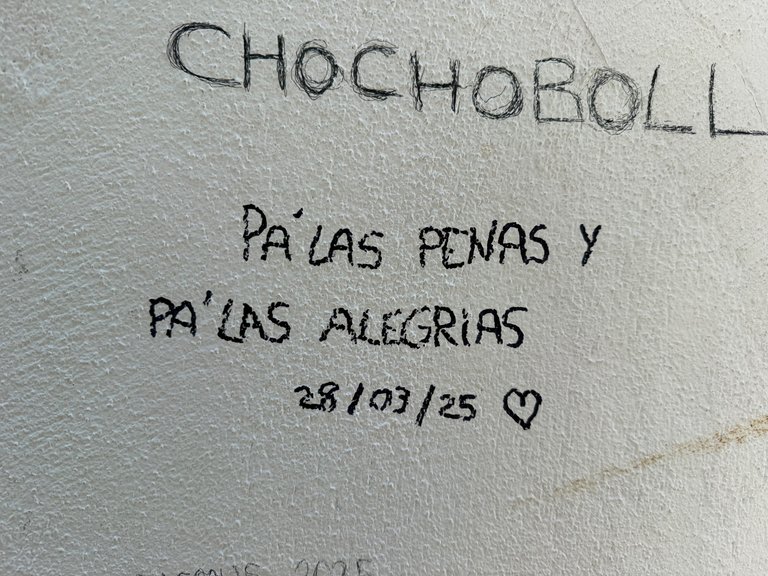 CHOCHOBOLL
PA'LAS PENAS Y
PA'LAS ALEGRIAS
28/03/25 ♡
2025